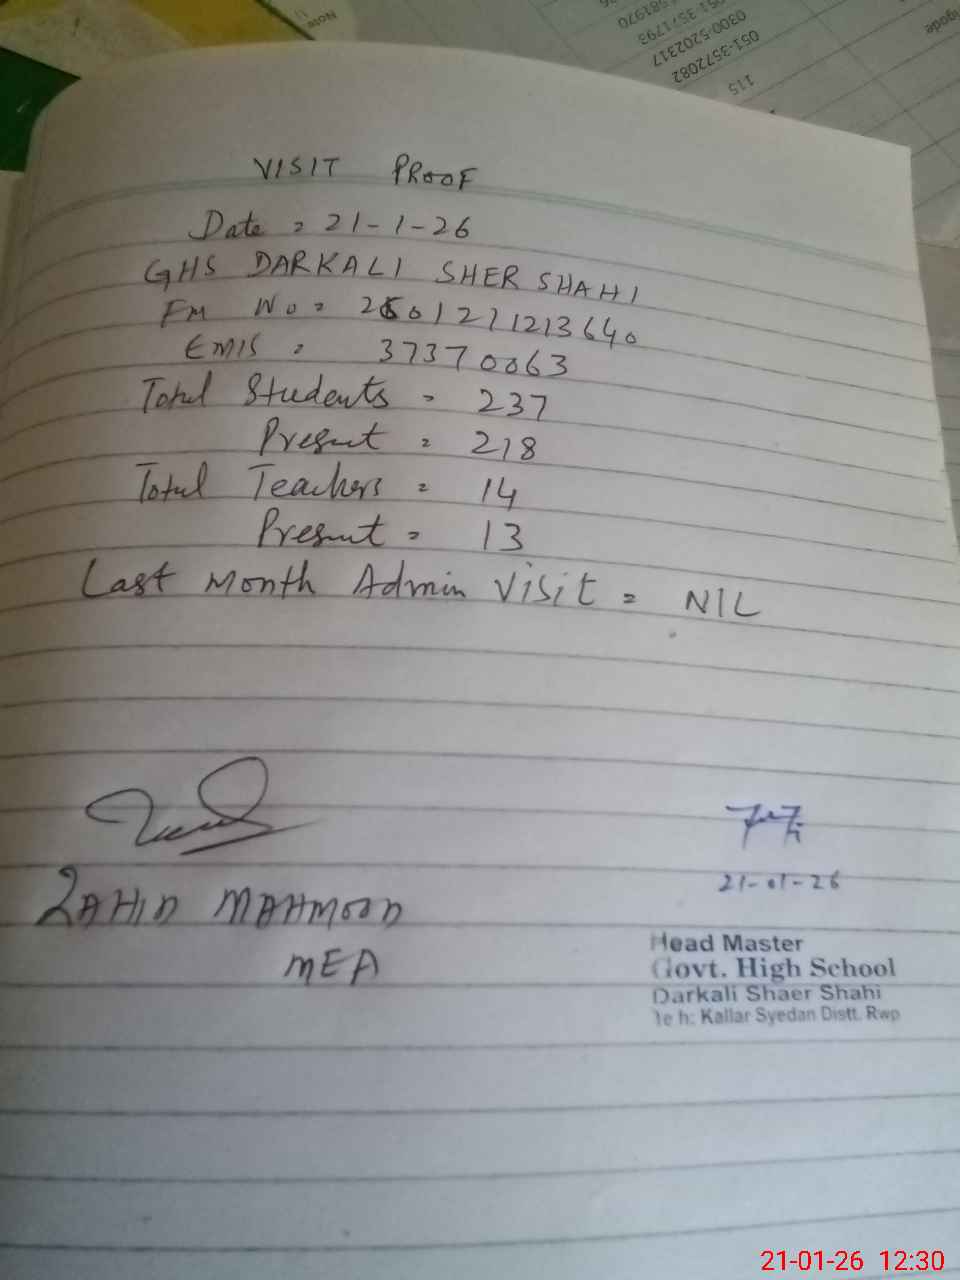 VISIT PROOF
Date = 21-1-26
GHS DARKALI SHER SHAHI
FM No = 2601211213640
EMIS = 37370063
Total Students = 237
Present = 218
Total Teachers = 14
Present = 13
Last Month Admin Visit = NIL
ZAHID MAHMOOD
MEA
21-01-26
Head Master
Govt. High School
Darkali Shaer Shahi
Teh: Kallar Syedan Distt. Rwp
115
051-3572082
0300-5202317
051-3571793
581970
Note
21-01-26 12:30